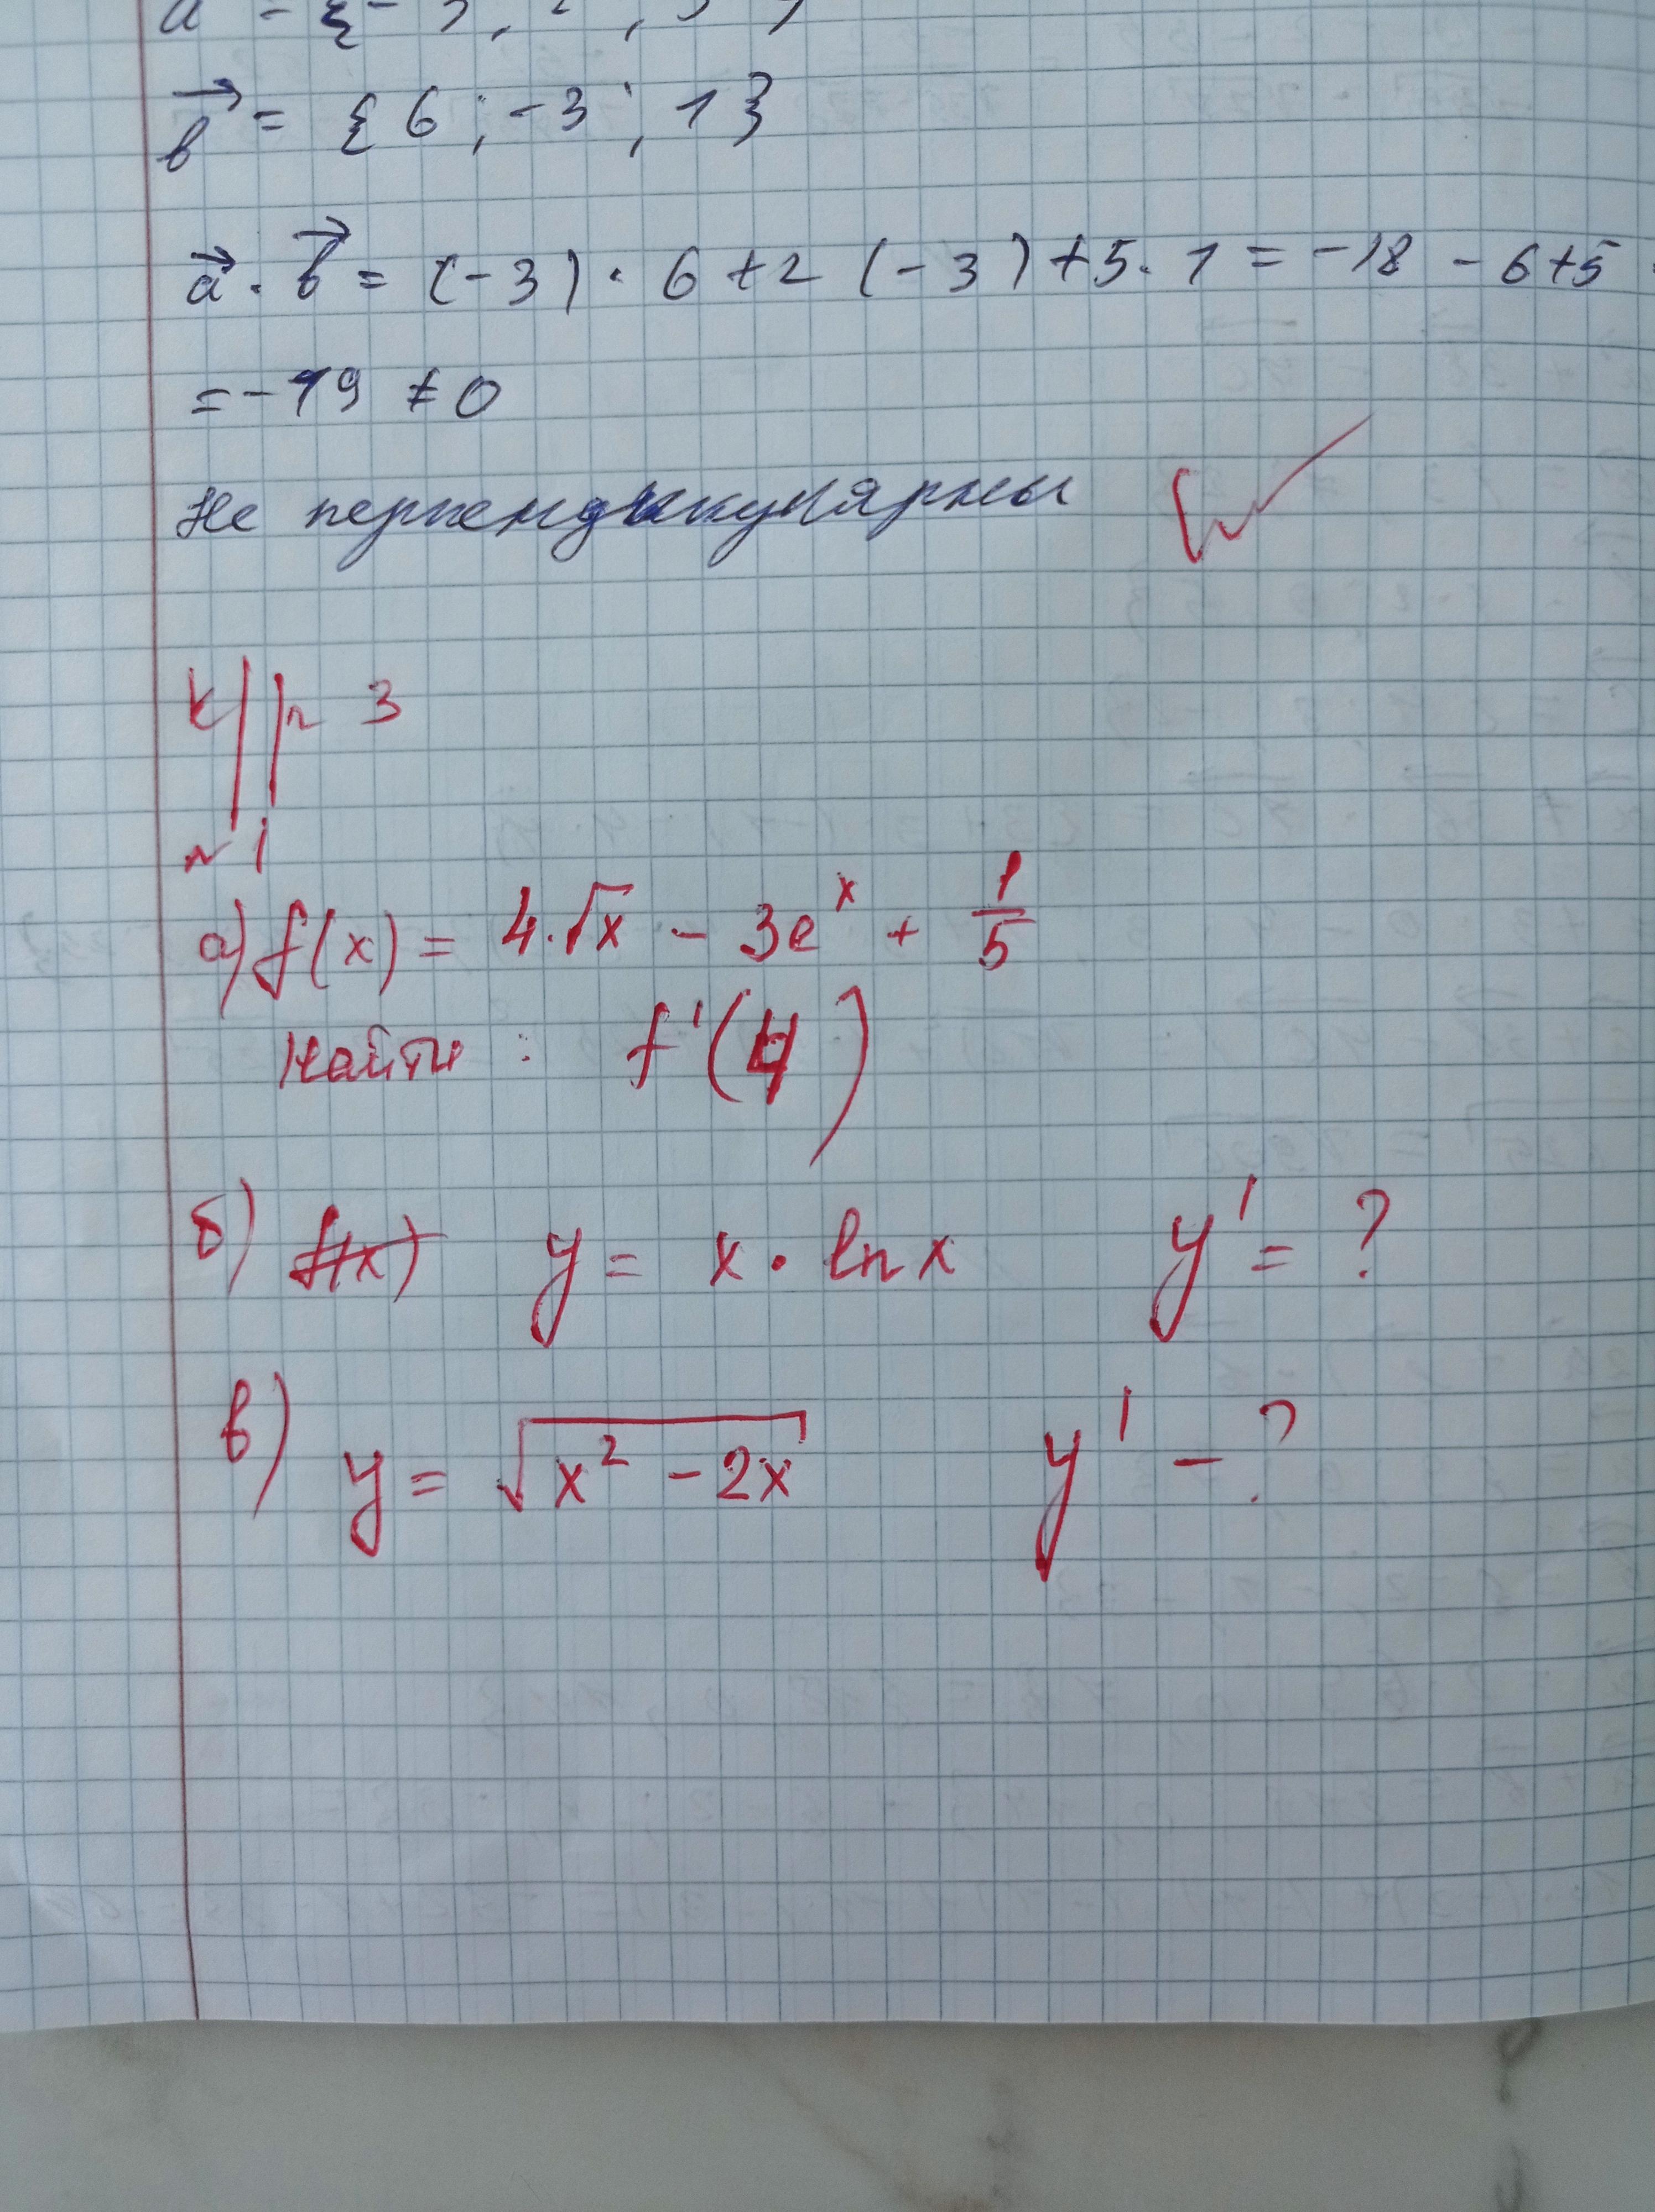 b⃗ = {6 ; -3 ; 1}
a⃗ · b⃗ = (-3) · 6 + 2 (-3) + 5 · 1 = -18 - 6 + 5
= -19 ≠ 0
не перпендикулярны
к/р 3
n 1
а) f(x) = 4·√x - 3e^x + 1/5
найти : f'(4)
б) f(x) y = x · ln x y' = ?
в) y = √(x² - 2x) y' - ?